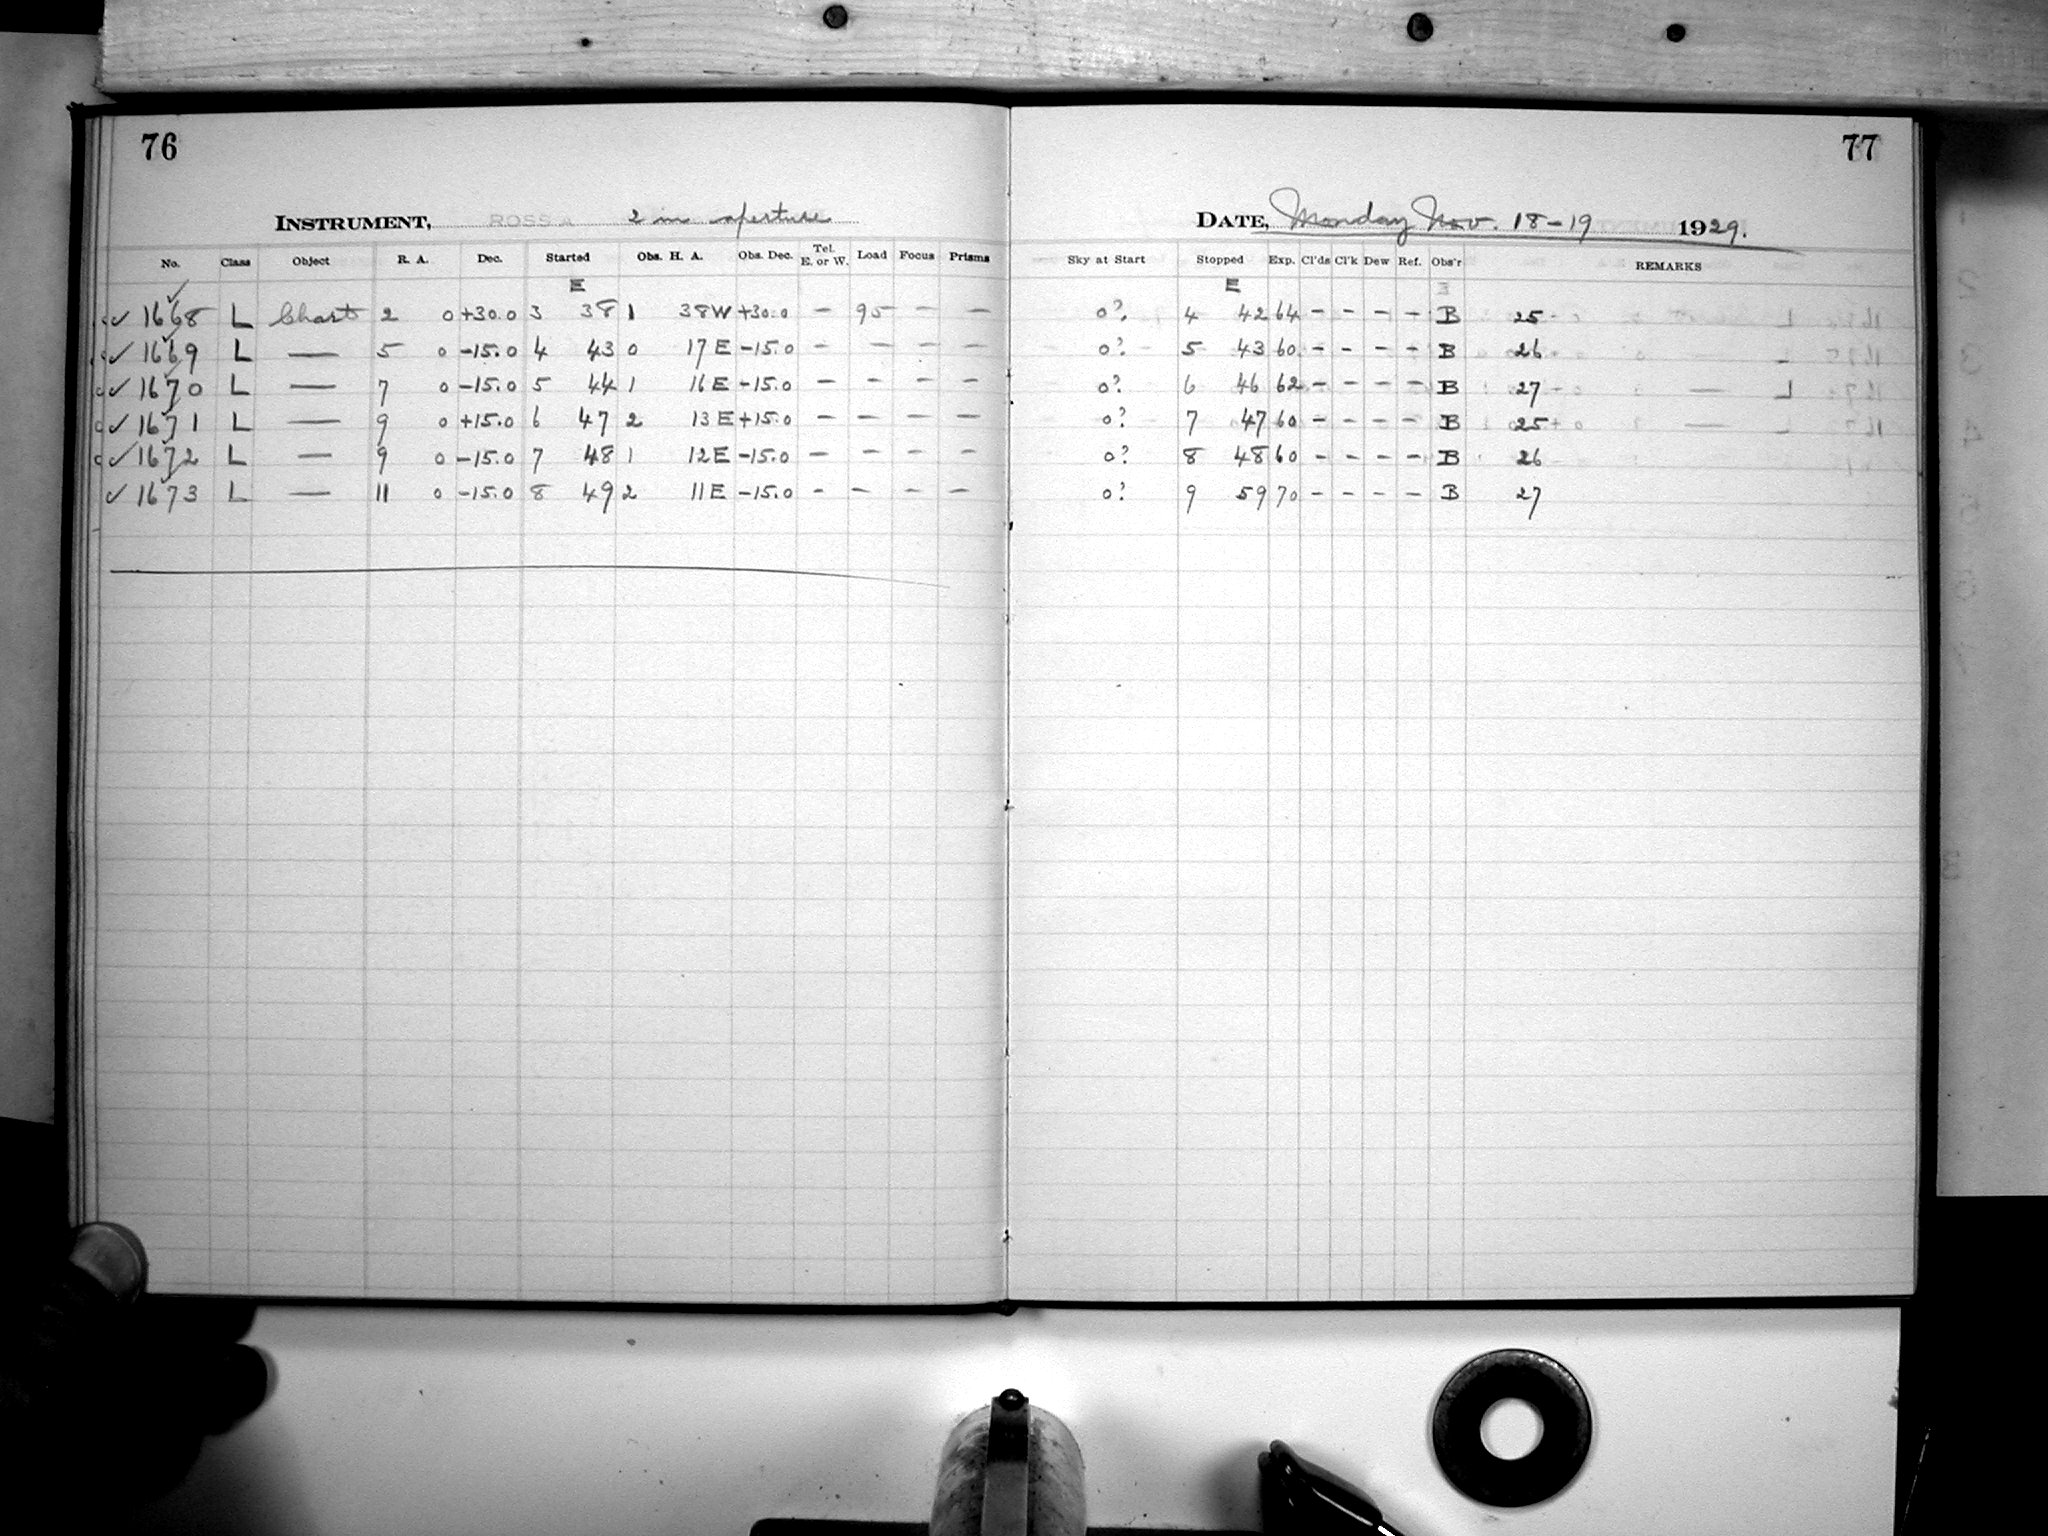 76
INSTRUMENT, ROSS A 2 in aperture
No. Class Object R. A. Dec. Started Obs. H. A. Obs. Dec. Tel. E. or W. Load Focus Prisms
E
✓ 1668 L Chart 2 0 +30.0 3 38 1 38 W +30.0 – 95 – –
✓ 1669 L — 5 0 -15.0 4 43 0 17 E -15.0 – – – –
✓ 1670 L — 7 0 -15.0 5 44 1 16 E -15.0 – – – –
✓ 1671 L — 9 0 +15.0 6 47 2 13 E +15.0 – – – –
✓ 1672 L — 9 0 -15.0 7 48 1 12 E -15.0 – – – –
✓ 1673 L — 11 0 -15.0 8 49 2 11 E -15.0 – – – –
77
DATE, Monday Nov. 18-19 1929.
Sky at Start Stopped Exp. Cl'ds Cl'k Dew Ref. Obs'r REMARKS
E
0? 4 42 64 – – – – B 25
0? 5 43 60 – – – – B 26
0? 6 46 62 – – – – B 27
0? 7 47 60 – – – – B 25
0? 8 48 60 – – – – B 26
0? 9 59 70 – – – – B 27